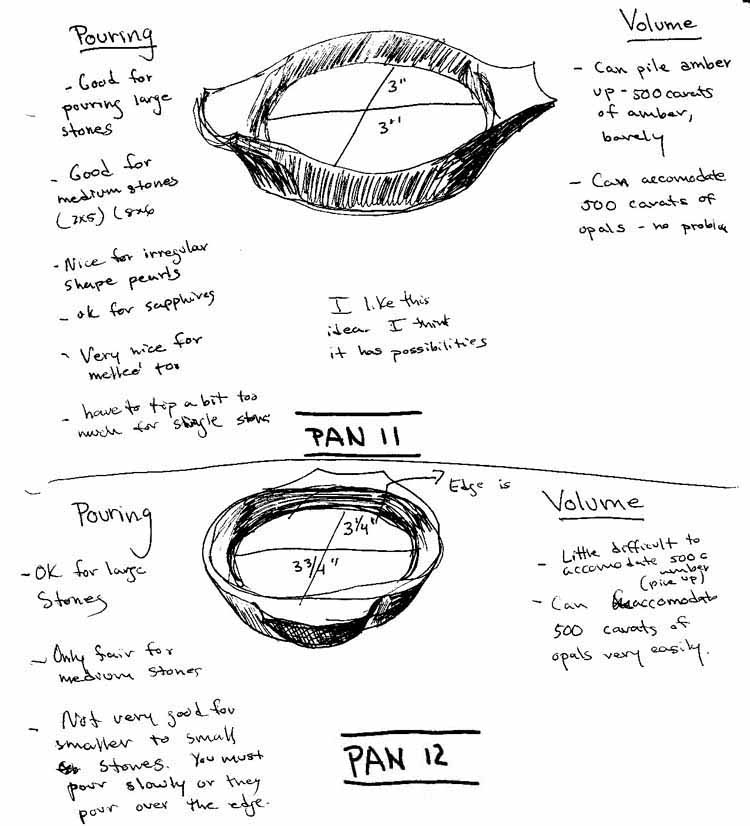 Pouring
- Good for
pouring large
stones
- Good for
medium stones
(7x5) (8x6
- Nice for irregular
shape pearls
- ok for sapphires
- Very nice for
melleé too
- have to tip a bit too
much for single stone
3"
3"
Volume
- Can pile amber
up - 500 carats
of amber,
barely
- Can accomodate
500 carats of
opals - no problem
I like this
idea. I think
it has possibilities
PAN 11
Pouring
- OK for large
Stones
- Only fair for
medium stones
- Not very good for
smaller to small
stones. You must
pour slowly or they
pour over the edge.
3 1/4"
3 3/4"
Edge is
Volume
- Little difficult to
accomodate 500 c
amber
(pile up)
- Can accomodate
500 carats of
opals very easily.
PAN 12